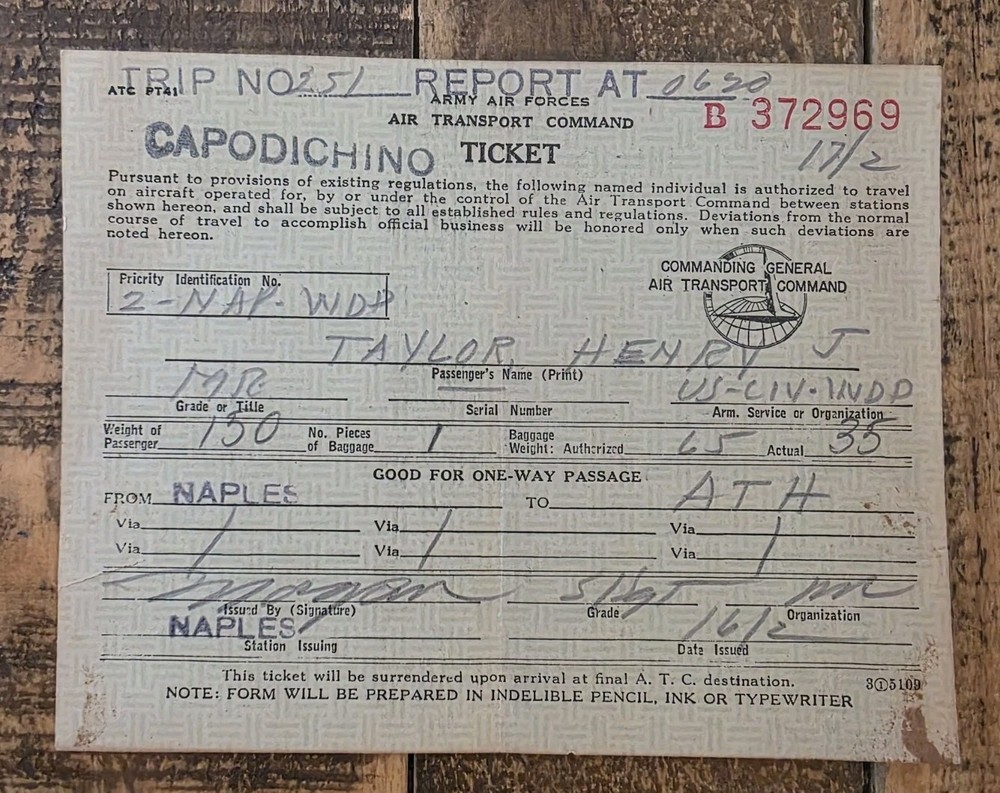 TRIP NO 251 REPORT AT 0620
ATC PT41
ARMY AIR FORCES
AIR TRANSPORT COMMAND
B 372969
CAPODICHINO TICKET 17/2
Pursuant to provisions of existing regulations, the following named individual is authorized to travel
on aircraft operated for, by or under the control of the Air Transport Command between stations
shown hereon, and shall be subject to all established rules and regulations. Deviations from the normal
course of travel to accomplish official business will be honored only when such deviations are
noted hereon.
COMMANDING GENERAL
AIR TRANSPORT COMMAND
Pricrity Identification No.
2-NAP-WDP
TAYLOR, HENRY J
Passenger's Name (Print)
MR. US-CIV-WDP
Grade or Title Serial Number Arm. Service or Organization
Weight of Passenger 150 No. Pieces of Baggage 1 Baggage Weight: Authorized 65 Actual 35
GOOD FOR ONE-WAY PASSAGE
FROM NAPLES TO ATH
Via / Via / Via /
Via Via Via
Morgan S/Sgt
Issued By (Signature) Grade Organization
NAPLES 16/2
Station Issuing Date Issued
This ticket will be surrendered upon arrival at final A. T. C. destination. 3①5109
NOTE: FORM WILL BE PREPARED IN INDELIBLE PENCIL, INK OR TYPEWRITER